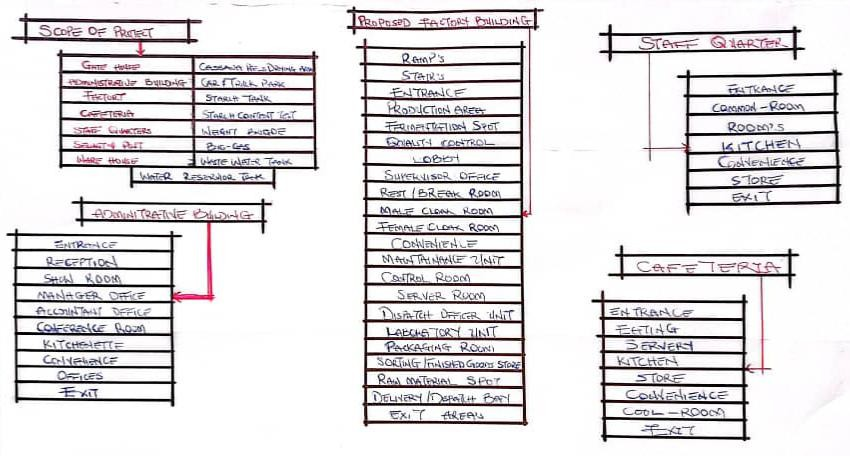 SCOPE OF PROJECT
GATE HOUSE
ADMINISTRATIVE BUILDING
FACTORY
CAFETERIA
STAFF QUARTERS
SECURITY POST
WARE HOUSE
CASSAVA
CAR & TRUCK PARK
STARCH TANK
STARCH CONTENT TEST
WEIGHT BRIGDE
BIO-GAS
WASTE WATER TANK
WATER RESERVIOR TANK
ADMINITRATIVE BUILDING
ENTRANCE
RECEPTION
SHOW ROOM
MANAGER OFFICE
ACCOUNTANT OFFICE
CONFERENCE ROOM
KITCHENETTE
CONVENIENCE
OFFICES
EXIT
PROPOSED FACTORY BUILDING
RAMP'S
STAIR'S
ENTRANCE
PRODUCTION AREA
FERMENTATION SPOT
QUALITY CONTROL
LOBBY
SUPERVISOR OFFICE
REST/BREAK ROOM
MALE CLOAK ROOM
FEMALE CLOAK ROOM
CONVENIENCE
MAINTAINANCE UNIT
CONTROL ROOM
SERVER ROOM
DISPATCH OFFICER UNIT
LABORATORY UNIT
PACKAGING ROOM
SORTING/FINISHED GOODS STORE
RAW MATERIAL SPOT
DELIVERY/DISPATCH BAY
EXIT AREAS
STAFF QUARTER
ENTRANCE
COMMON-ROOM
ROOM'S
KITCHEN
CONVENIENCE
STORE
EXIT
CAFETERIA
ENTRANCE
EATING
SERVERY
KITCHEN
STORE
CONVENIENCE
COOL-ROOM
EXIT